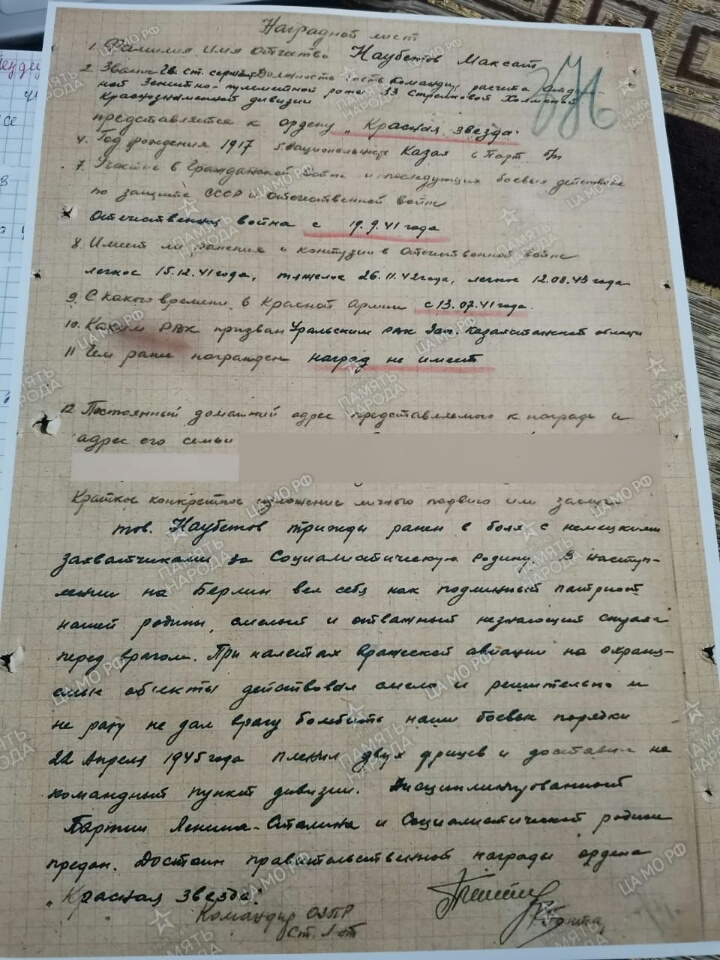 Наградной лист
1. Фамилия имя отчество Наубетов Максат
2. Звание Гв. ст. сержант Должность Командир расчета
ной Зенитно-пулеметной роты 33 Стрелковой Холмской
Краснознаменной дивизии
представляется к ордену "Красная звезда".
4. Год рождения 1917 5 Национальность Казах 6 Парт б/п
7. Участие в Гражданской войне и последующих боевых действиях
по защите СССР и отечественной войне
Отечественная война с 19.9.41 года
8. Имеет ли ранения и контузии в отечественной войне
легкое 15.12.41 года, тяжелое 26.11.42 года, легкое 12.08.43 года
9. С какого времени в Красной Армии с 13.07.41 года.
10. Каким РВК призван Уральским рвк Зап. Казахстанской области
11 Чем ранее награжден наград не имеет
12. Постоянный домашний адрес представляемого к награде и
адрес его семьи
Краткое конкретное изложение личного подвига или заслуг
тов. Наубетов трижды ранен в боях с немецкими
захватчиками за Социалистическую родину. В наступ-
лении на Берлин вел себя как подлинный патриот
нашей родины, смелый и отважный незнающий страха
перед врагом. При налетах вражеской авиации на охраня-
емые объекты действовал смело и решительно и
не разу не дал врагу бомбить наши боевые порядки
22 Апреля 1945 года пленил двух фрицев и доставил на
командный пункт дивизии. Дисциплинированный
Партии Ленина-Сталина и Социалистической родине
предан. Достоин правительственной награды ордена
"Красная звезда".
Командир ОЗПР
Ст. л-т
ПАМЯТЬ НАРОДА
ЦА МО РФ